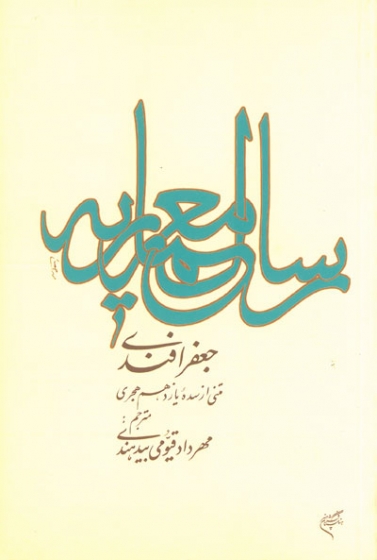 رسالهٔ معماریه
جعفر افندی
متنی از سدهٔ یازدهم هجری
مترجم:
مهرداد قیّومی بیدهندی